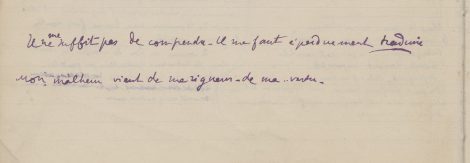 Il ne me suffit pas de comprendre - il me faut éperdument traduire
mon malheur vient de ma rigueur - de ma vertu -